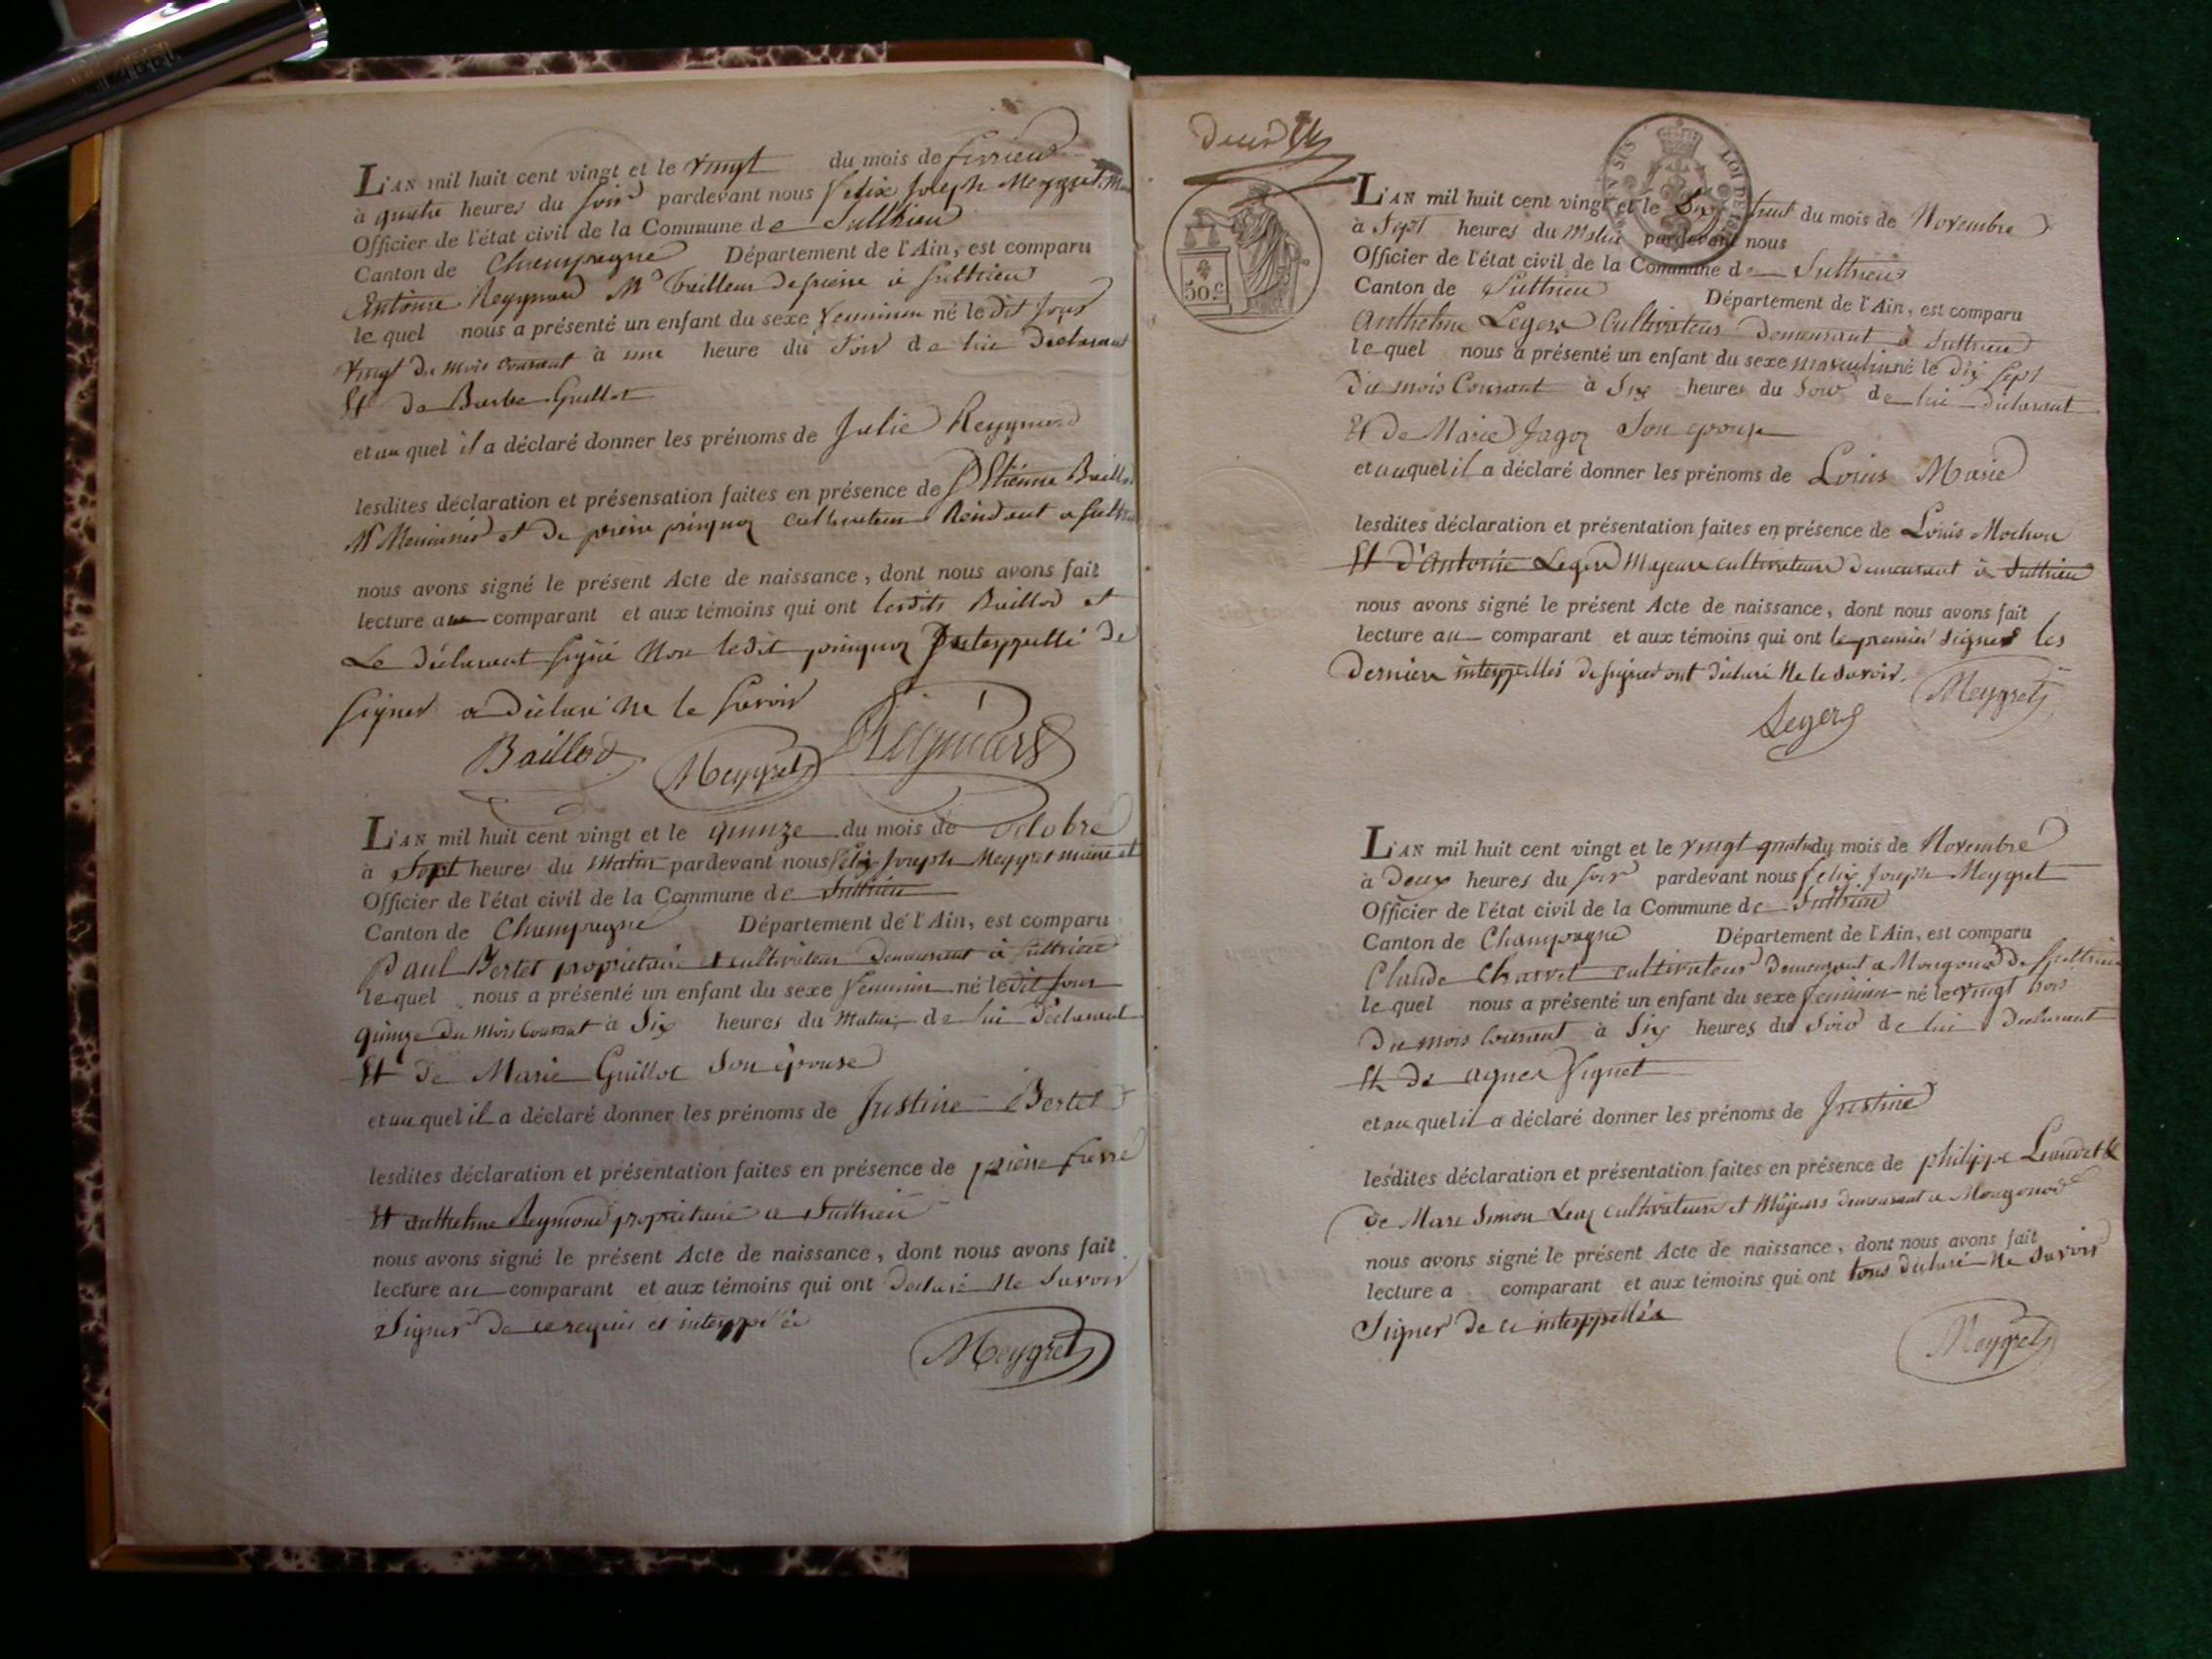 L'AN mil huit cent vingt et le vingt du mois de fevrier
à quatre heures du soir pardevant nous Felix Joseph Meygret
Officier de l'état civil de la Commune de Sutthieu
Canton de Champagne Département de l'Ain, est comparu
Antoine Reygnard Md Tailleur de pierre à Sutrieu
le quel nous a présenté un enfant du sexe feminin né le dit jour
vingt du mois courant à une heure du soir de lui declarant
Et de Barbe Guillot
et au quel il a déclaré donner les prénoms de Julie Reygnard
lesdites déclaration et présensation faites en présence de Etienne Baillod
et de pierre pinquoz cultivateur
nous avons signé le présent Acte de naissance, dont nous avons fait
lecture au comparant et aux témoins qui ont lesdits Baillod et
Le déclarant signé Non ledit pinquoz Interppellé de
signer a déclaré ne le savoir
Baillod Meygret
L'AN mil huit cent vingt et le quinze du mois de Octobre
à Sept heures du Matin pardevant nous Felix Joseph Meygret maire et
Officier de l'état civil de la Commune de Suttrieu
Canton de Champagne Département de l'Ain, est comparu
Paul Bertet propriétaire et cultivateur demeurant à Suttrieu
le quel nous a présenté un enfant du sexe feminin né le dit jour
quinze du mois courant à Six heures du matin de lui déclarant
Et de Marie Guillot Son épouse
et au quel il a déclaré donner les prénoms de Justine Bertet
lesdites déclaration et présentation faites en présence de pierre favre
Et anthelme Reymond propriétaire a Suttrieu
nous avons signé le présent Acte de naissance, dont nous avons fait
lecture au comparant et aux témoins qui ont declaré ne Savoir
Signer de ce requis et interppellé
Meygret
LOI DE
50 c
L'AN mil huit cent vingt et le Dix huit du mois de Novembre
à Sept heures du Matin pardevant nous
Officier de l'état civil de la Commune de Suttrieu
Canton de Suttrieu Département de l'Ain, est comparu
Anthelme Leger Cultivateur demeurant à Suttrieu
le quel nous a présenté un enfant du sexe masculin né le dix sept
du mois Courant à Six heures du Soir de lui déclarant
Et de Marie Jagoz Son épouse
et au quel il a déclaré donner les prénoms de Louis Marie
lesdites déclaration et présentation faites en présence de Louis Mochon
Et d'Antoine Leger Majeurs cultivateurs demeurant à Suttrieu
nous avons signé le présent Acte de naissance, dont nous avons fait
lecture au comparant et aux témoins qui ont le premier signé les
derniers interppellés de signer ont déclaré Ne le savoir.
Meygret
Leger
L'AN mil huit cent vingt et le vingt quatre du mois de Novembre
à Deux heures du soir pardevant nous felix Joseph Meygret
Officier de l'état civil de la Commune de Suttrieu
Canton de Champagne Département de l'Ain, est comparu
Claude Charvet cultivateur demeurant a Mongonod de Suttrieu
le quel nous a présenté un enfant du sexe feminin né le vingt trois
du mois Courant à Six heures du Soir de lui declarant
Et de agnes Vignet
et au quel il a déclaré donner les prénoms de Justine
lesdites déclaration et présentation faites en présence de philippe
de Marc Simon cultivateurs et Majeurs demeurant a Mongonod
nous avons signé le présent Acte de naissance, dont nous avons fait
lecture a comparant et aux témoins qui ont tous déclaré Ne Savoir
Signer de ce interppellés
Meygret